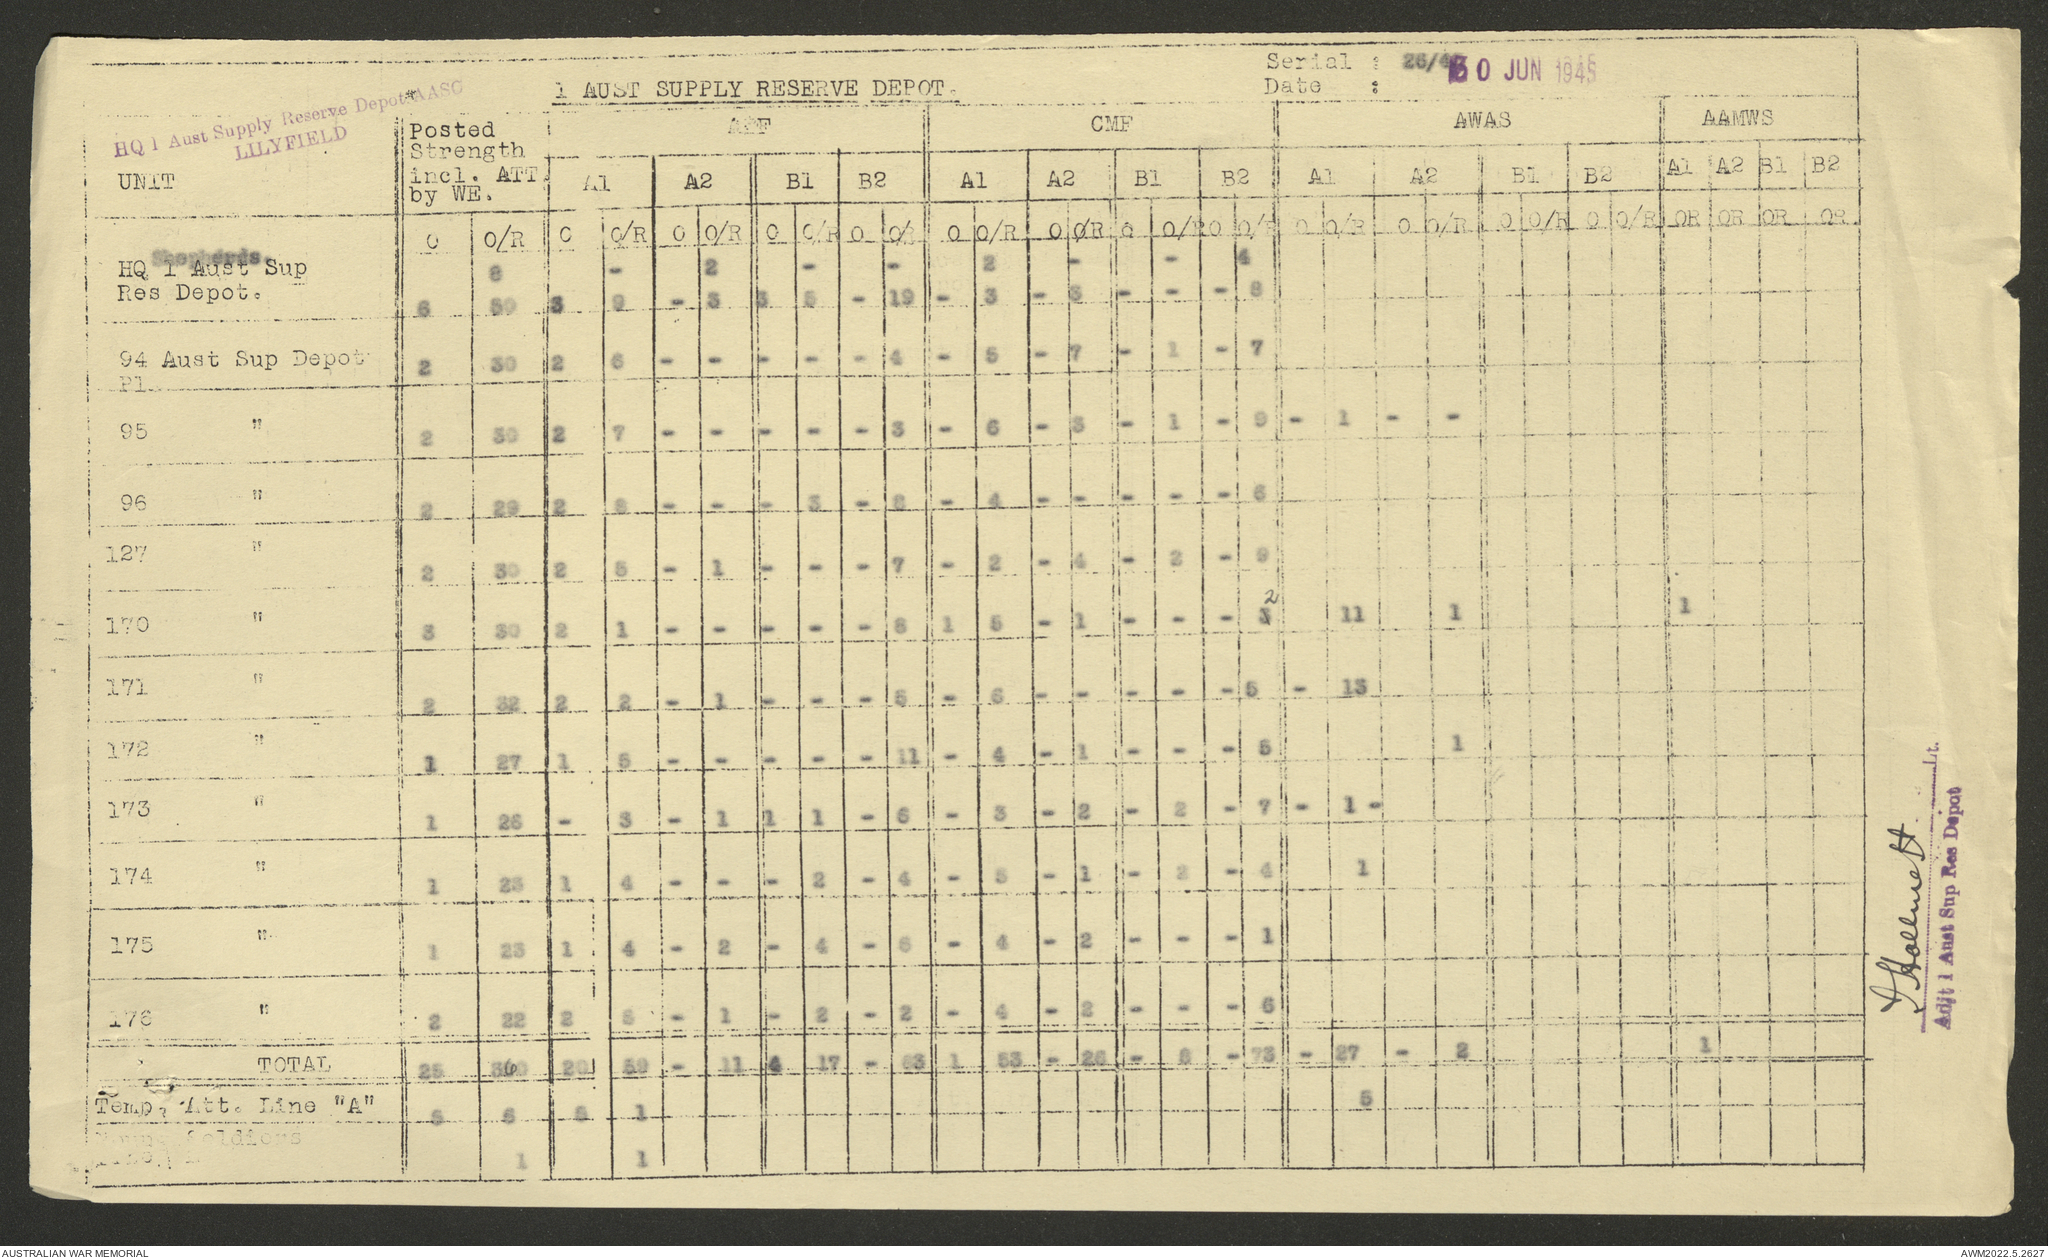 Serial : 26/4
30 JUN 1945
1 AUST SUPPLY RESERVE DEPOT.
Date :
HQ 1 Aust Supply Reserve Depot AASC
LILYFIELD
UNIT
Posted
Strength
incl. ATT
by WE.
AIF CMF AWAS AAMWS
A1 A2 B1 B2 A1 A2 B1 B2 A1 A2 B1 B2 A1 A2 B1 B2
O O/R O O/R O O/R O O/R O O/R O O/R O O/R O O/R O O/R O O/R O O/R O O/R O O/R OR OR OR OR
Shepherds. 8 - 2 - - 2 - - 4
HQ 1 Aust Sup
Res Depot. 6 3 9 - 3 3 - 19 - 3 - 3 - - - 8
94 Aust Sup Depot 2 30 2 6 - - - - - 4 - 5 - 7 - 1 - 7
Pl.
95 " 2 30 2 7 - - - - - 3 - 6 - 3 - 1 - 9 - 1 - -
96 " 2 29 2 - - - 3 - 8 - 4 - - - - - 6
127 " 2 30 2 5 - 1 - - - 7 - 2 - 4 - 2 - 9
170 " 3 30 2 1 - - - - - 8 1 5 - 1 - - - 3 2 11 1 1
171 " 2 32 2 2 - 1 - - - 5 - 6 - - - - - 5 - 13
172 " 1 27 1 5 - - - - - 11 - 4 - 1 - - - 5 1
173 " 1 26 - 3 - 1 1 1 - 6 - 3 - 2 - 2 - 7 - 1 -
174 " 1 23 1 4 - - - 2 - 4 - 5 - 1 - 2 - 4 1
175 " 1 23 1 4 - 2 - 4 - 6 - 4 - 2 - - - 1
176 " 2 22 2 5 - 1 - 2 - 2 - 4 - 2 - - - 6
TOTAL 25 360 20 59 - 11 4 17 - 83 1 53 - 26 - 8 - 73 - 27 - 2 1
Temp. Att. Line "A" 1 5
Soldiers
1 1
Lt.
Adjt 1 Aust Sup Res Depot
AUSTRALIAN WAR MEMORIAL
AWM2022.5.2627